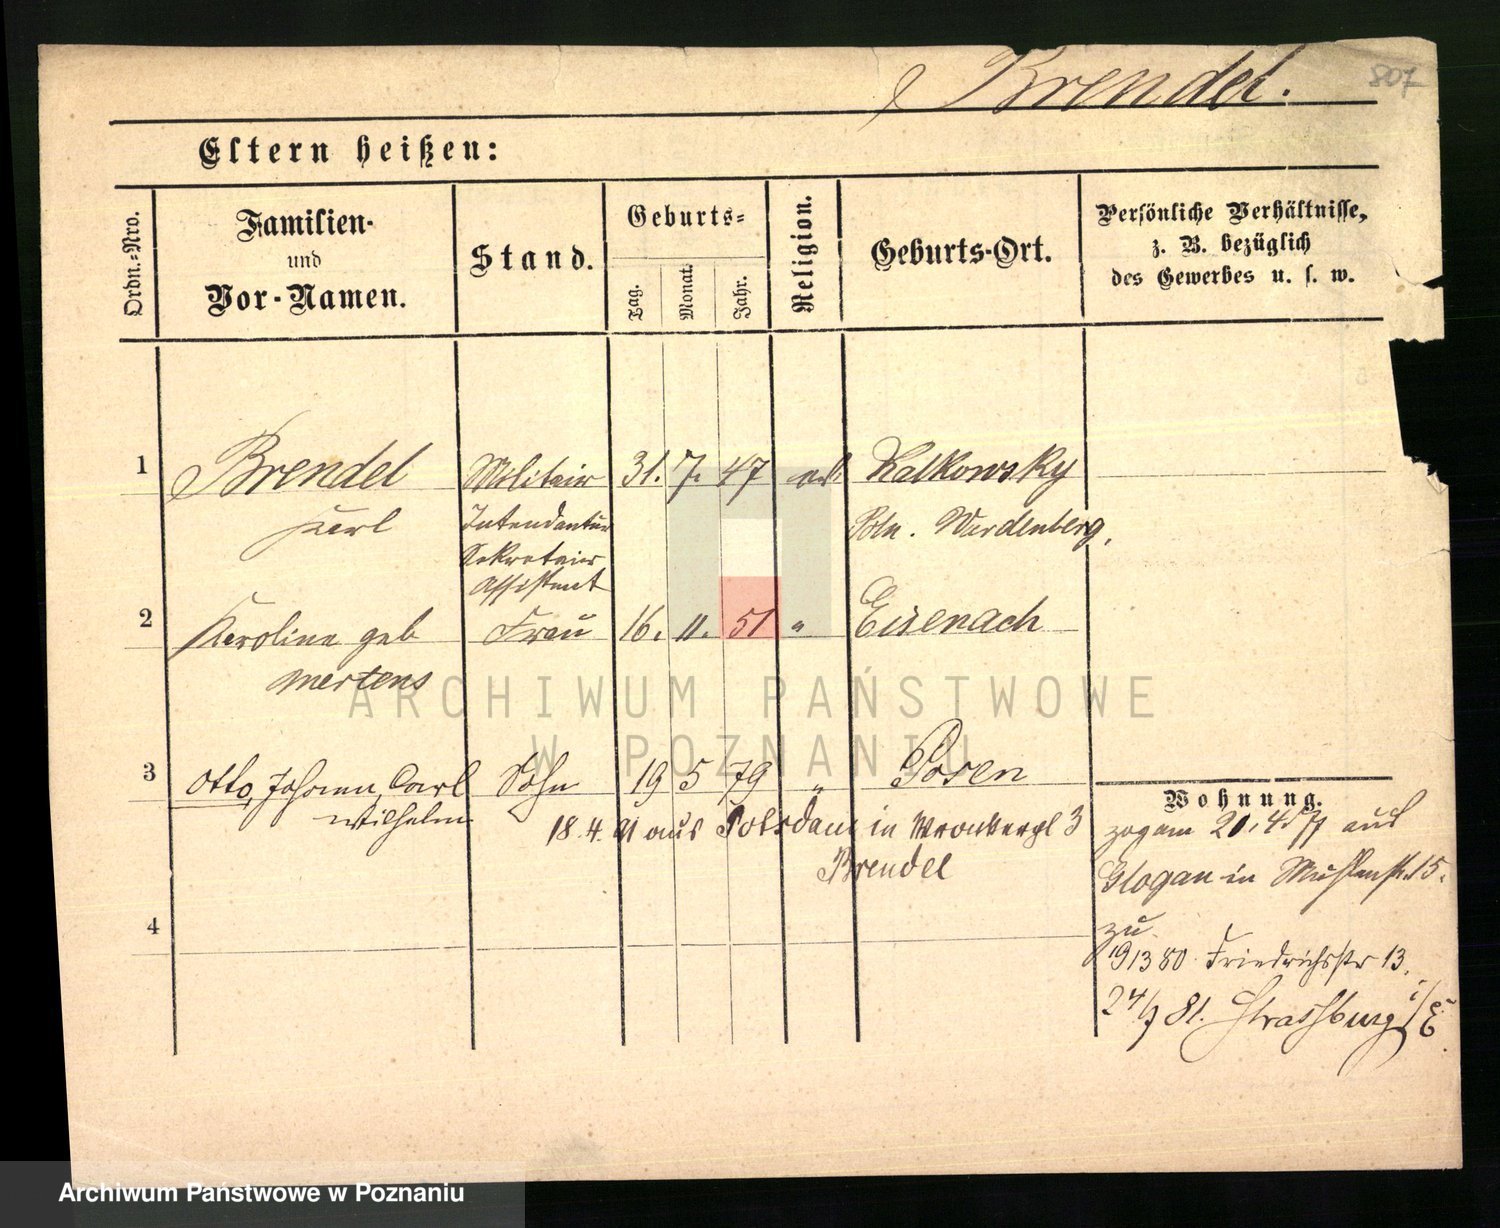 Brendel.
807
Eltern heißen:
Ordn.-Nro.
Familien-
und
Vor-Namen.
Stand.
Geburts-
Tag.
Monat.
Jahr.
Religion.
Geburts-Ort.
Persönliche Verhältnisse,
z. B. bezüglich
des Gewerbes u. s. w.
1 Brendel Militair 31. 7. 47 Kalkowsky
Karl Intendantur Poln. Wardenberg,
Sekretair
Assistent
2 Karoline geb Frau 16. 11. 51 " Eisenach
Mertens
ARCHIWUM PAŃSTWOWE
W POZNANIU
3 Otto, Johann, Carl Sohn 19 5 79 " Posen
Wilhelm
18. 4. 91 aus Potsdam in 3
Brendel
4
Wohnung.
zog am 20. 4. 77 aus
Glogau in Mühlenst. 15.
zu
19 3 80 Friedrichstr 13.
24/7 81. Strassburg i/E
Archiwum Państwowe w Poznaniu